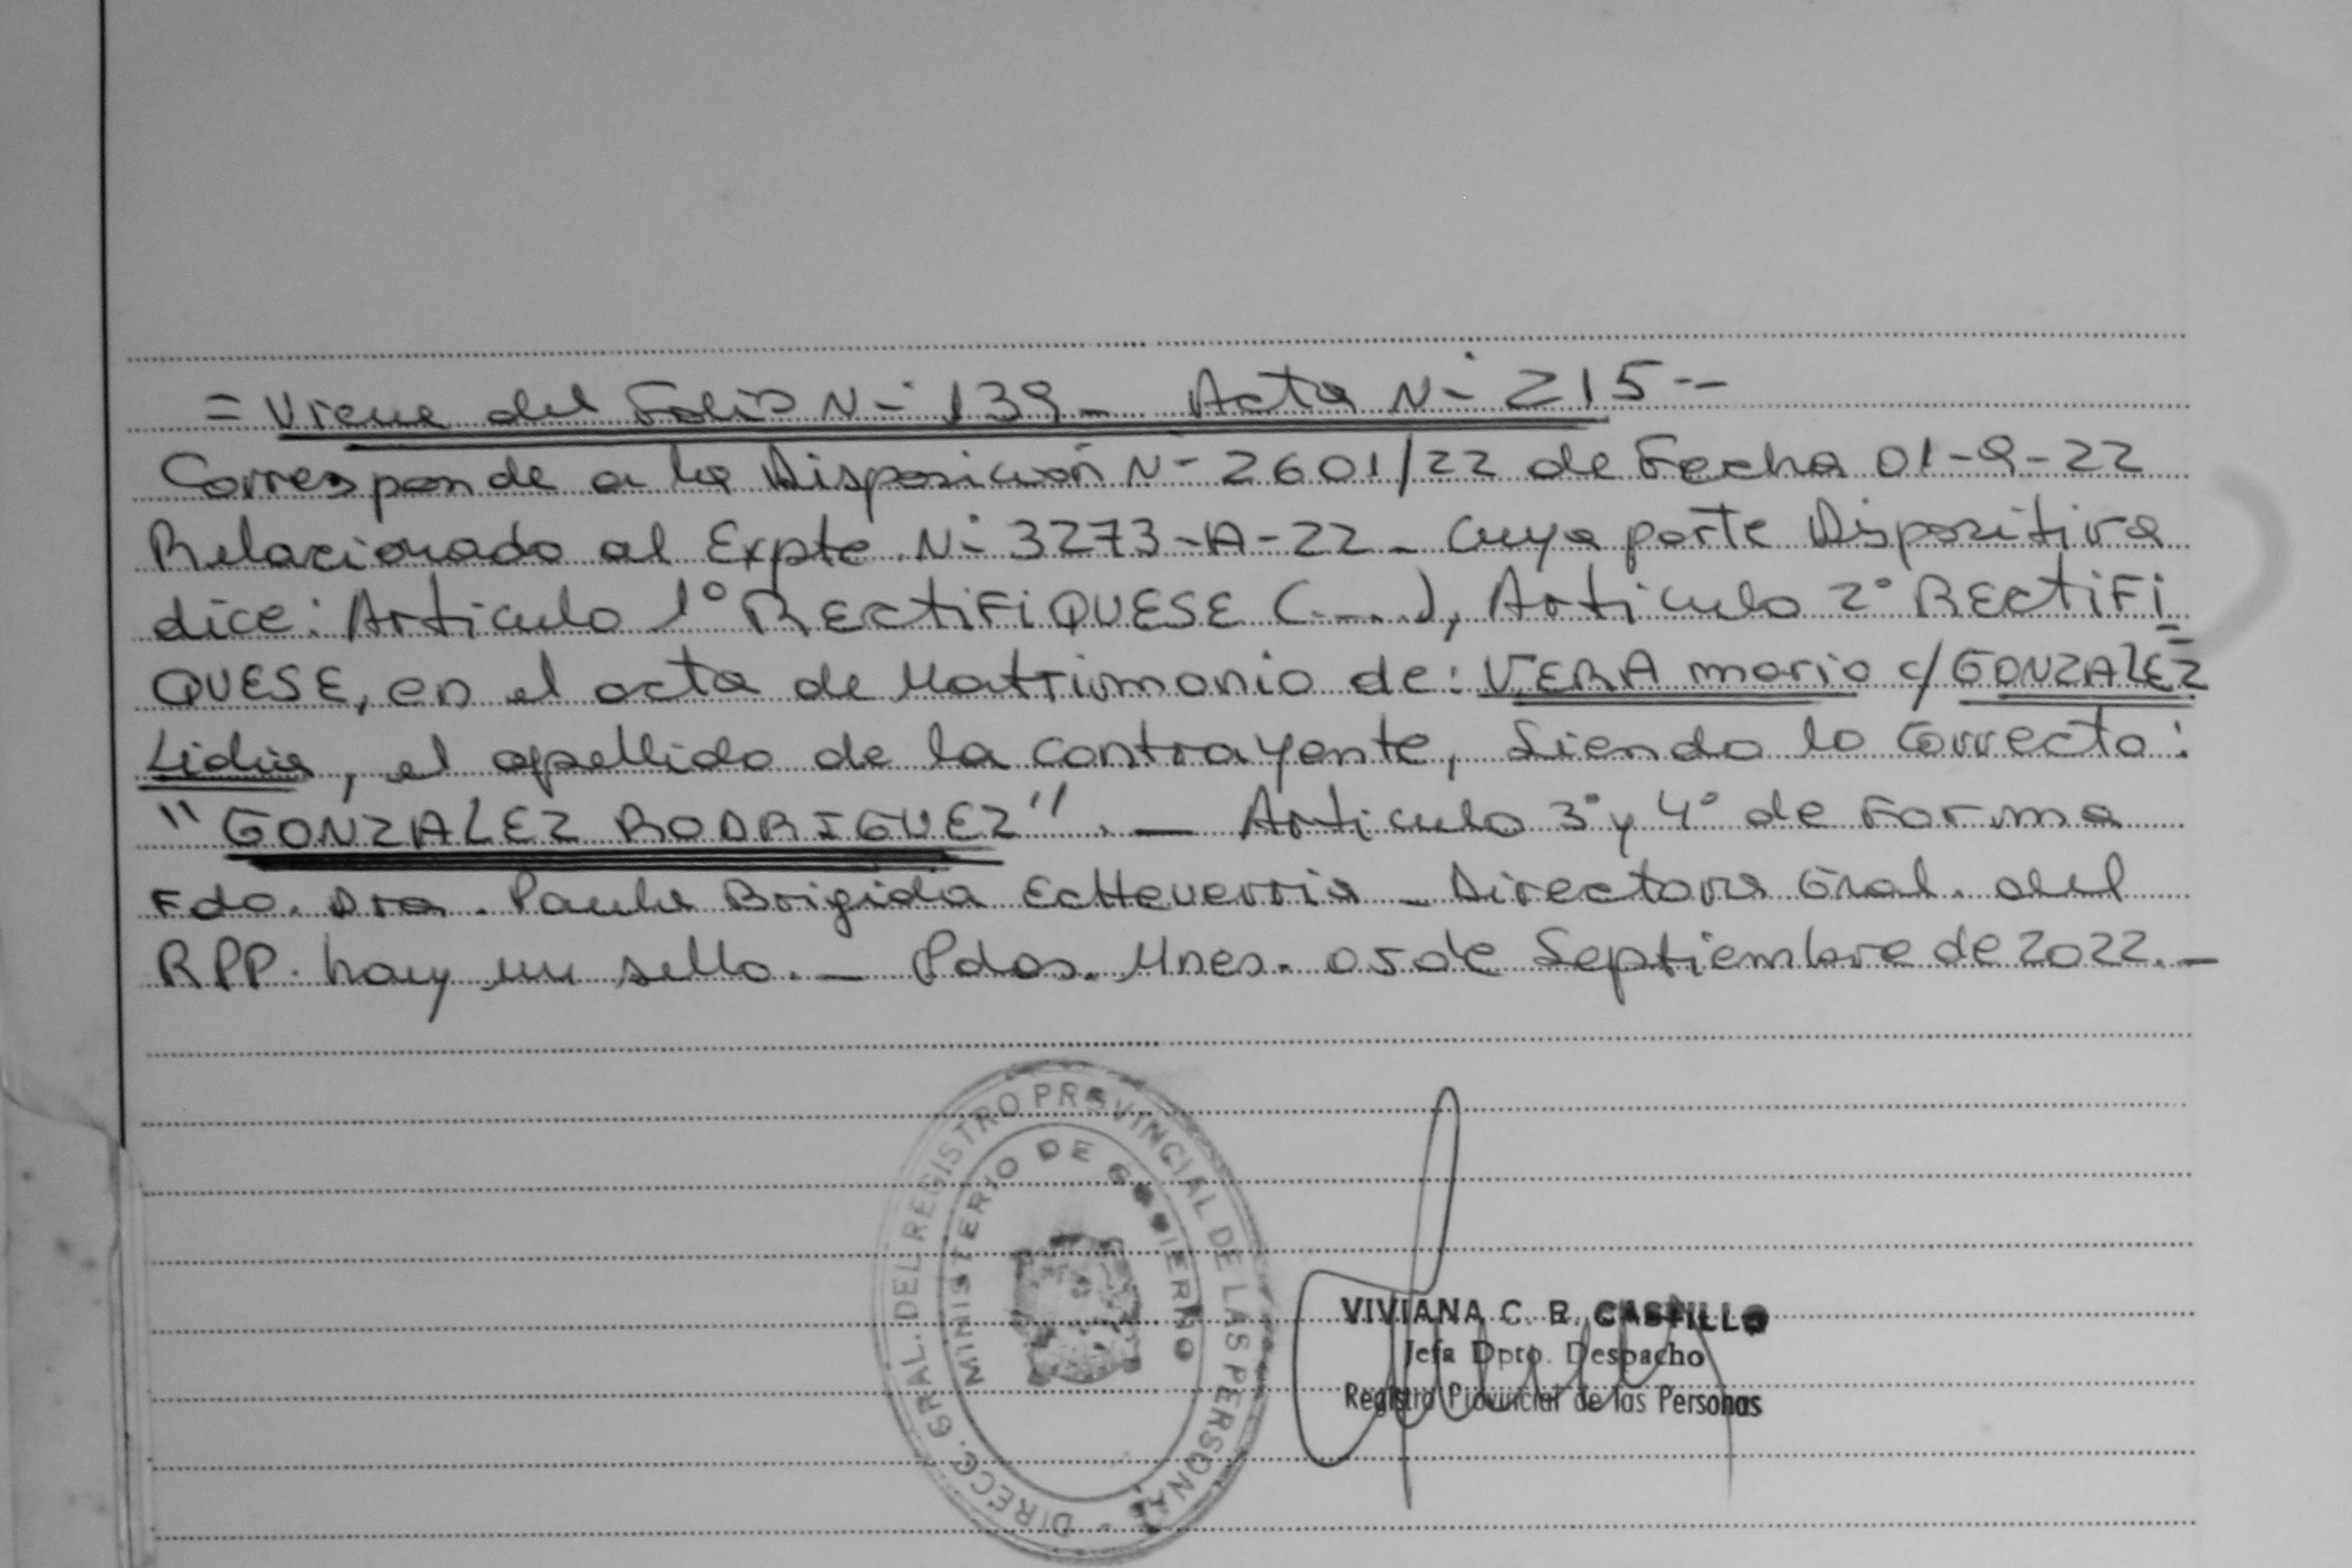 = Viene del Folio N° 139 - Acta N° 215 --
Corresponde a la Disposición N° 2601/22 de Fecha 01-9-22
Relacionado al Expte N° 3273-A-22 - Cuya parte Dispositiva
dice: Articulo 1° RECTIFIQUESE (----), Articulo 2° RECTIFI
QUESE, en el acta de Matrimonio de: VERA mario c/ GONZALEZ
Lidia, el apellido de la contrayente, Siendo lo Correcto:
"GONZALEZ RODRIGUEZ". — Articulo 3° y 4° de Forma
Fdo. Dra. Paula Brigida Echeverria - Directora Gral. del
RPP. hay un sello. — Pdas. Mnes. 05 de Septiembre de 2022. —
DIRECC. GRAL. DEL REGISTRO PROVINCIAL DE LAS PERSONAS
MINISTERIO DE GOBIERNO
VIVIANA C. R. CASTILLO
Jefa Dpto. Despacho
Registro Provincial de las Personas